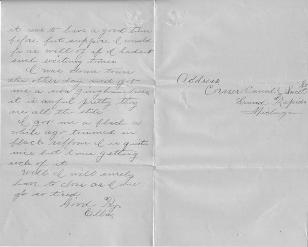 it was to have a good time
before but suppose I would
be as well of if I hadent
such exciting times
I was down town
the other day and got
me a new gingham dress
it is awful pretty they
are all the style
I got me a black a
while ago trimmed in
black I is quite
nice but I am getting
sick of it
Well I will surely
have to close as I am
so tired
Good By.
Ella
Address
Corner Canal &
Grand Rapids
Michigan